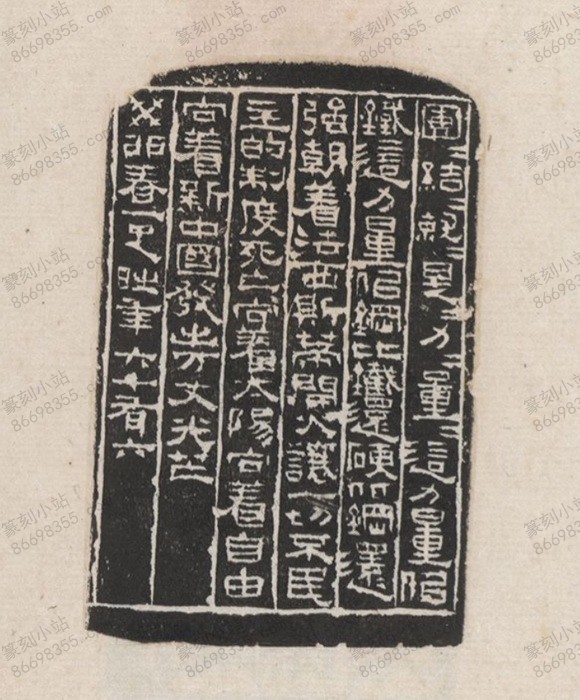 團〻結〻就〻是〻力〻量〻這力量是
鐵這力量是鋼比鐵還硬比鋼還
强朝着法西斯蒂開火讓一切不民
主的制度死亡向着太陽向着自由
向着新中國發出万丈光芒
春一足時年六十有六